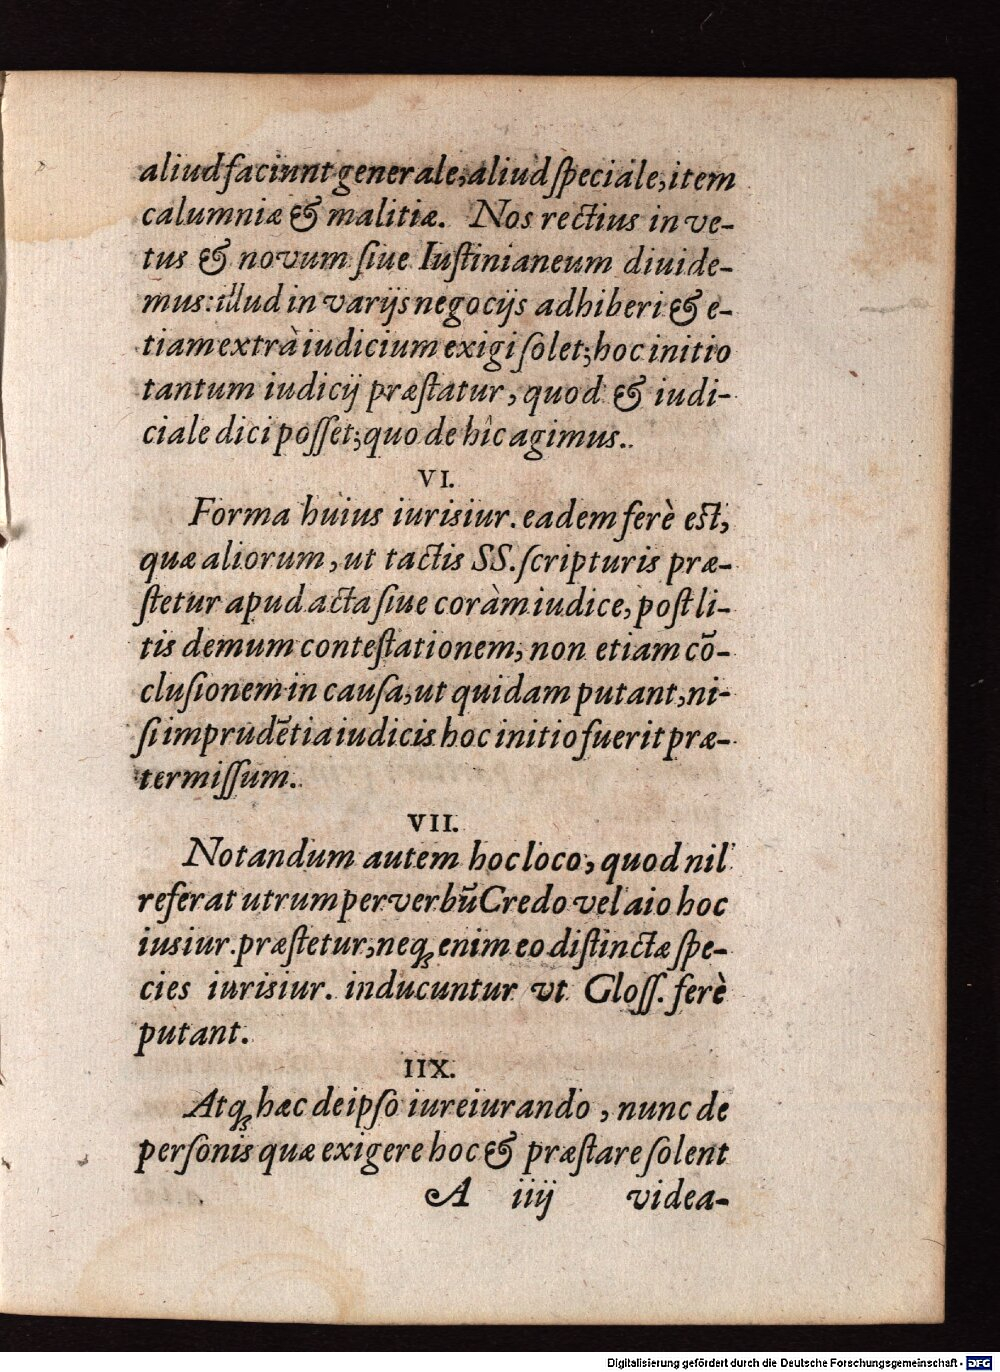 aliud faciunt generale, aliud ſpeciale, item
calumniæ & malitiæ. Nos rectius in ve-
tus & novum ſiue Iuſtinianeum diuide-
mus: illud in varijs negocijs adhiberi & e-
tiam extrà iudicium exigi ſolet; hoc initio
tantum iudicij præſtatur, quod & iudi-
ciale dici poſſet; quo de hîc agimus.
VI.
Forma huius iurisiur. eadem ferè eſt,
quæ aliorum, ut tactis SS. ſcripturis præ-
ſtetur apud acta ſiue coràm iudice, poſt li-
tis demum conteſtationem, non etiam cō-
cluſionem in cauſa, ut quidam putant, ni-
ſi imprudētia iudicis hoc initio fuerit præ-
termiſſum.
VII.
Notandum autem hoc loco, quod nil
referat utrum per verbū Credo vel aio hoc
iusiur. præſtetur, neq; enim eo diſtinctæ ſpe-
cies iurisiur. inducuntur vt Gloſſ. ferè
putant.
IIX.
Atq; hæc de ipſo iureiurando, nunc de
perſonis quæ exigere hoc & præſtare ſolent
A iiij videa-
Digitalisierung gefördert durch die Deutsche Forschungsgemeinschaft - DFG